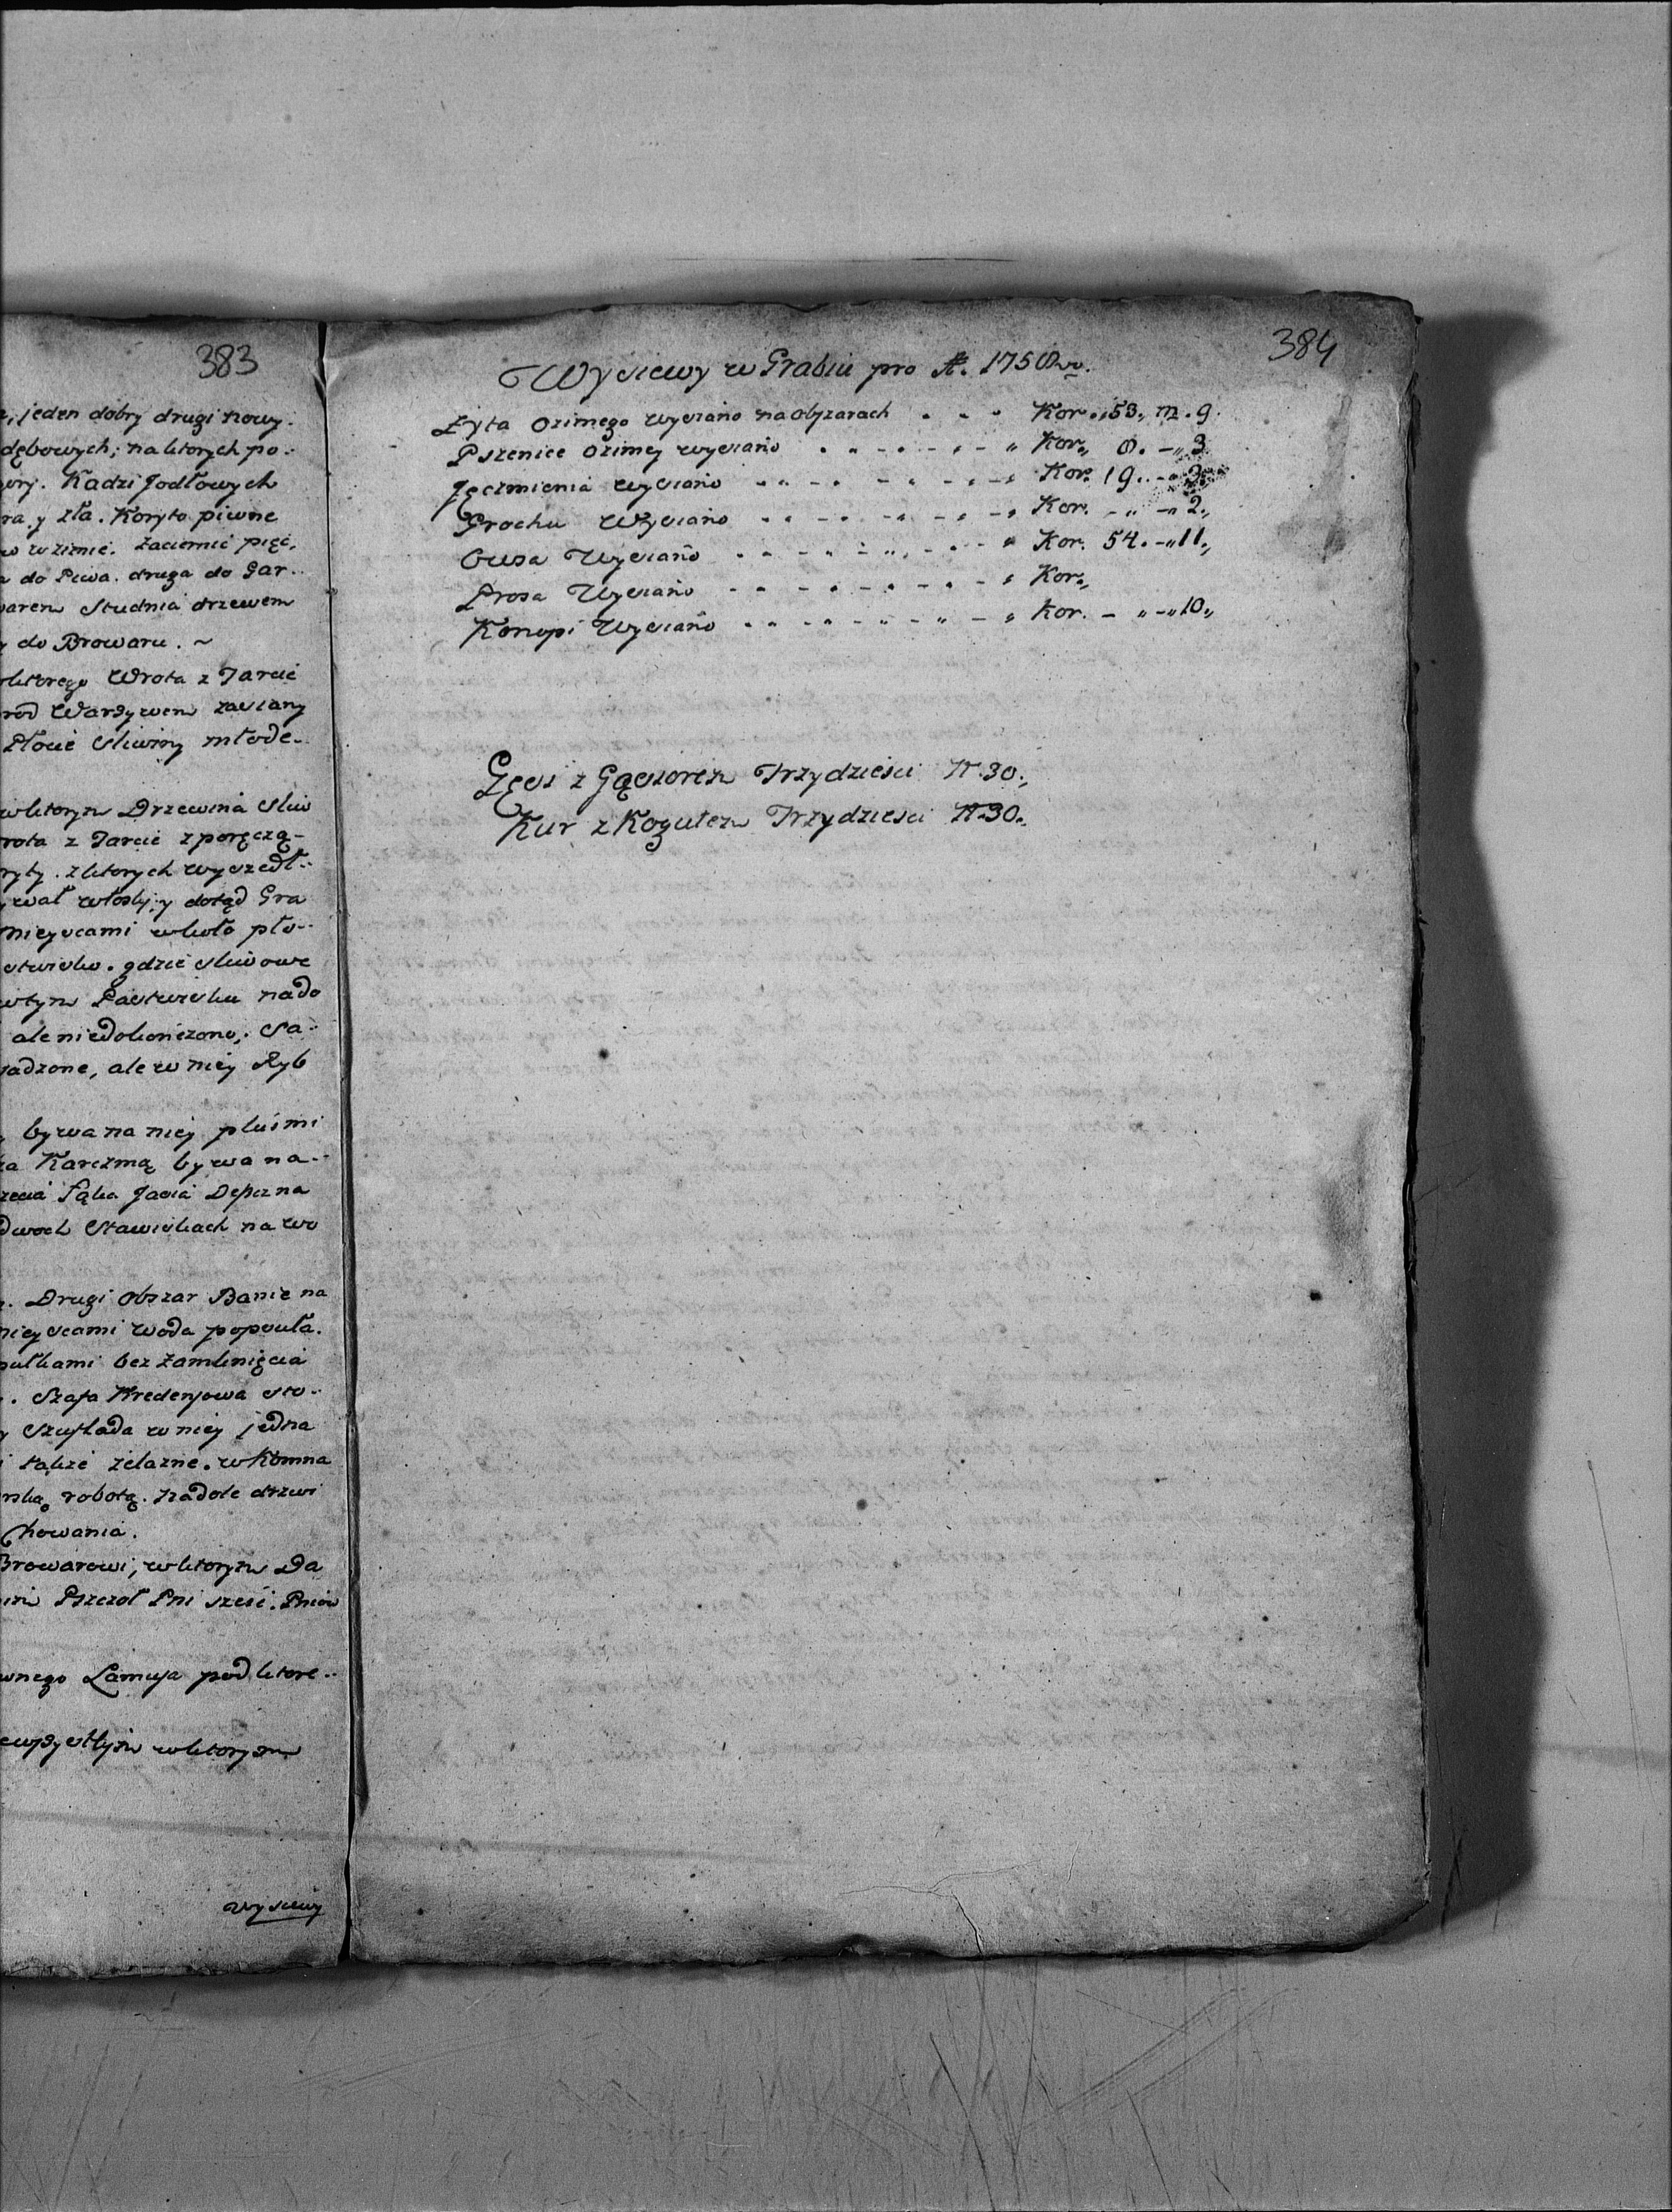 383
, jeden dobry drugi nowy.
dębowych, na ktorych po..
Kadzi Jodłowych
ra y zła. Koryto piwne
w zimie. Zaciernie pięć,
a do Piwa. druga do Gar..
warem Studnia drzewem
y do Browaru. ~
ktorego Wrota z Tarcic
rod Warzywem zasiany
Płocie sliwiny młode..
w ktorym Drzewina Sliw
rota z Tarcic z poręczą-
ryty. z ktorych wyszedł..
wał włosky, y dotąd Gra
mieyscami w koło pło..
stwisko. gdzie sliwowe
w tym Pastwisku nado
ale niedokończono, Sa..
sadzone, ale w niey Ryb
, bywa na niey pluśmi
za Karczmą bywa na..
rzecia Łąka Jasia Depczna
dwoch Stawiskach na wo
. Drugi obszar Banie na
mieyscami woda popsuła.
pułkami bez zamknięcia
. Szafa Kredensowa sto..
y Szuflada w niey jedna
i także żelazne. w Komna
rską robotą. na dole drzwi
chowania.
Browarowi, w ktorym Da
Pszczoł Pni szesc. Pniow
wnego Lamusa pod ktore..
ewszystkim w ktorym
wysiewy
384
Wysiewy w Grabiu pro A. 1750vo.
Żyta ozimego wysiano na obszarach . . . Kor. 53,, m. 9.
Pszenice ozimey wysiano . . - . - . - „ Kor,, 0. - „ 3
Jęczmienia wysiano . . - . - . - . - „ Kor. 19. - „ 3.
Grochu Wysiano . . - . - . - . - „ Kor. - „ - „ 2„
Owsa Wysiano . . - . - „ . - . - „ Kor. 54. - „ 11„
Prosa Wysiano - . - . - . - . - „ Kor„
Konopi Wysiano . . - . - „ - „ - „ Kor. - „ - „ 10„
Gęsi z Gąsiorem Trzydziesci N. 30„
Kur z Kogutem Trzydziesci N. 30„